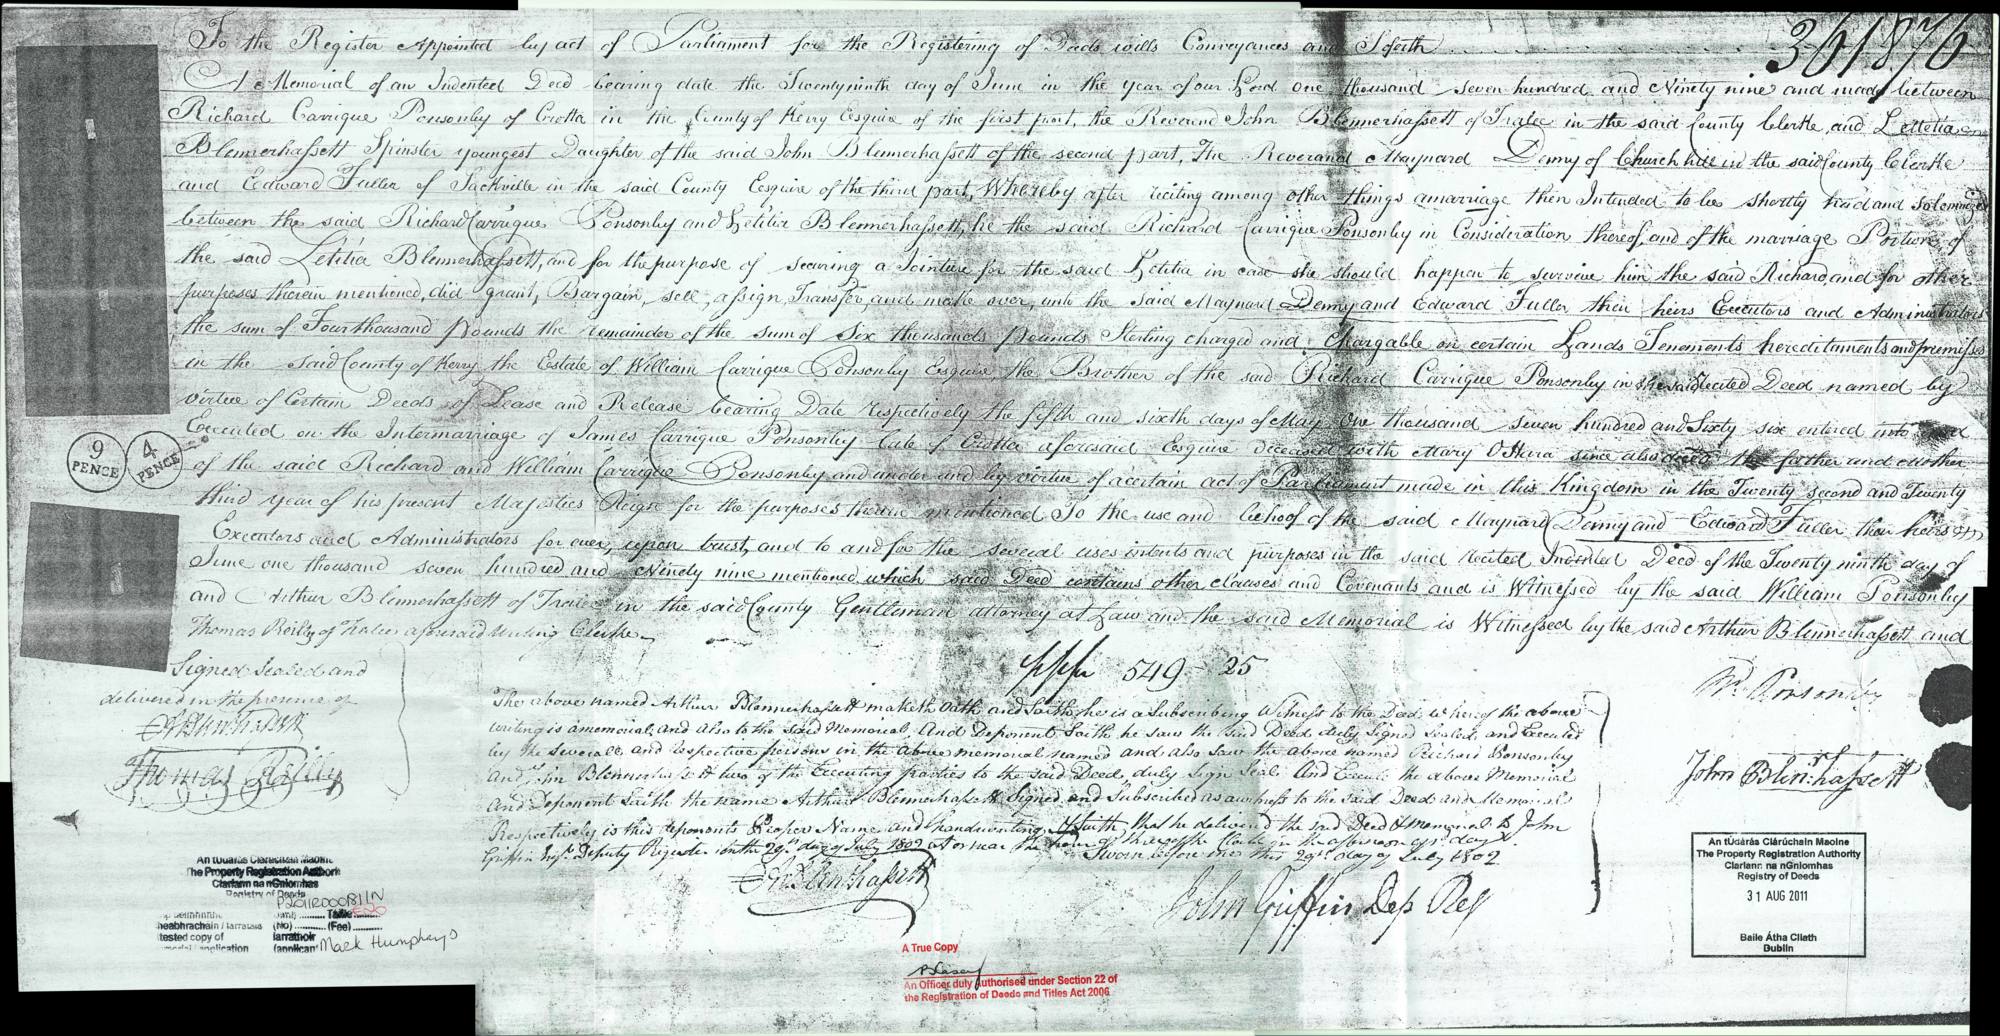 To the Register Appointed by act of Parliament for the Registering of Deeds wills Conveyances and Soforth
361876
A Memorial of an Indented Deed bearing date the Twentyninth day of June in the year of our Lord one thousand seven hundred and Ninety nine and made between
Richard Carrique Ponsonby of Crotta in the County of Kerry Esquire of the first part, the Reverend John Blennerhassett of Tralee in the said County Clerke, and Lettetia
Blennerhassett Spinster youngest Daughter of the said John Blennerhassett of the second part, The Reverand Maynard Denny of Church hill in the said County Clerke
and Eedward Fuller of Sackville in the said County Esquire of the third part, Whereby after reciting among other things a marriage then Intended to be shortly had and Solemnized
between the said Richard Carrique Ponsonby and Letitia Blennerhassett, he the said Richard Carrique Ponsonby in Consideration thereof, and of the marriage Portion of
the said Letitia Blennerhassett, and for the purpose of securing a Jointure for the said Letitia in case she should happen to survive him the said Richard, and for other
purposes therein mentioned, did grant, Bargain, sell, assign, Transfer, and make over, unto the Said Maynard Denny and Edward Fuller, their heirs Executors and Administrators
the sum of Four thousand pounds the remainder of the sum of Six thousands pounds Sterling charged and Chargable on certain Lands Tenements hereditaments and premisses
in the said County of Kerry the Estate of William Carrique Ponsonby Esquire, the Brother of the said Richard Carrique Ponsonby in the said recited Deed named by
virtue of Certain Deeds of Lease and Release bearing Date respectively the fifth and sixth days of May one thousand seven hundred and Sixty six entered into and
Executed on the Intermarriage of James Carrique Ponsonby late of Crotta aforesaid Esquire deceased with Mary O'Hara since also deced the father and Mother
of the said Richard and William Carrique Ponsonby and under and by virtue of a certain act of Parliament made in this Kingdom in the Twenty second and Twenty
third year of his present Majesties Reign for the purposes therein mentioned To the use and behoof of the said Maynard Denny and Edward Fuller their heirs
Executors and Administrators for ever, upon trust, and to and for the several uses intents and purposes in the said recited Indented Deed of the Twenty ninth day of
June one thousand seven hundred and Ninety nine mentioned which said Deed contains other clauses and Covenants and is Witnessed by the said William Ponsonby
and Arthur Blennerhassett of Tralee in the said County Gentleman attorney at Law and the said Memorial is Witnessed by the said Arthur Blennerhassett and
Thomas Reilly of Tralee aforesaid Writing Clerke
9 PENCE
4 PENCE
Signed Sealed and
delivered in the presence of
Thomas Reilly
549 - 25
The above named Arthur Blennerhassett maketh Oath and Saith, he is a Subscribing Witness to the Deed whereof the above
writing is a memorial, and also to the Said Memorial, And Deponent Saith he saw the Said Deed duly Signed Sealed and Executed
by the Severall and respective persons in the above memorial named and also saw the above named Richard Ponsonby
And Jn Blennerhassett two of the Executing parties to the said Deed, duly Sign Seal And Execute the above Memorial
And Deponent Saith the name Arthur Blennerhassett Signed and Subscribed as a witness to the said Deed and Memorial
Respectively is this deponents Proper Name and handwriting & Saith that he delivered the said Deed & Memorial to John
Griffin Deputy Register on the 29th day of July 1802 at or near the hour of three of the Clock in the afternoon of sd day
Sworn before me this 29th day of July 1802
John Griffin Dep Reg
Wm Ponsonby
John Blennrhassett
An tÚdarás Clárúcháin Maoine
The Property Registration Authority
Clárlann na nGníomhas
Registry of Deeds
P2011R000811N
Table END
(No) (Fee)
Iarrathóir
(applicant) Mark Humphrys
A True Copy
An Officer duly authorised under Section 22 of
the Registration of Deeds and Titles Act 2006
An tÚdarás Clárúcháin Maoine
The Property Registration Authority
Clárlann na nGníomhas
Registry of Deeds
31 AUG 2011
Baile Átha Cliath
Dublin